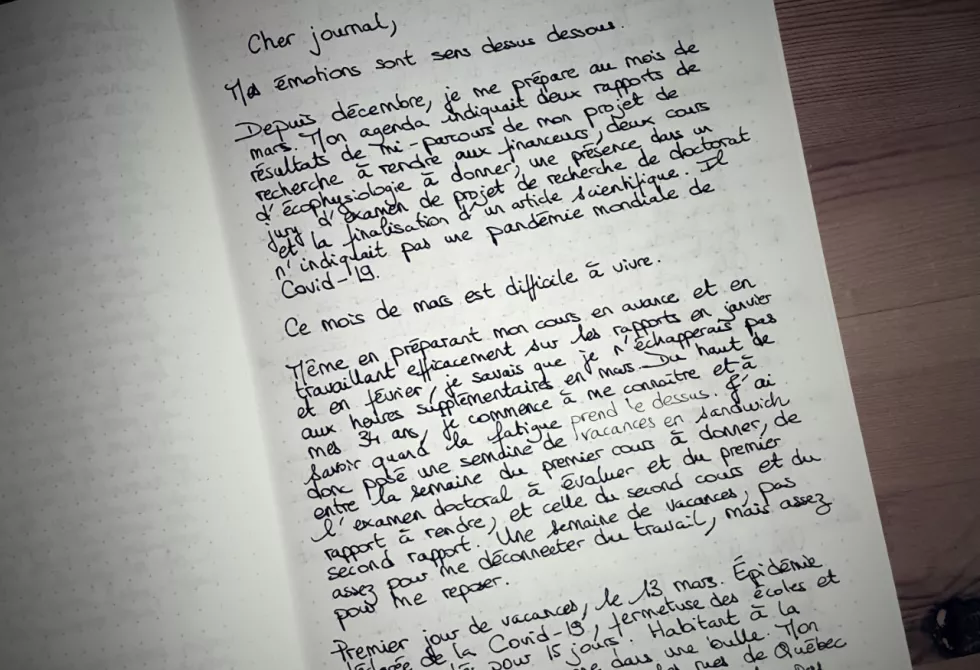 Cher journal,
Mes émotions sont sens dessus dessous.
Depuis décembre, je me prépare au mois de
mars. Mon agenda indiquait deux rapports de
résultats de mi-parcours de mon projet de
recherche à rendre aux financeurs, deux cours
d'écophysiologie à donner, une présence dans un
jury d'examen de projet de recherche de doctorat
et la finalisation d'un article scientifique. Il
n'indiquait pas une pandémie mondiale de
Covid-19.
Ce mois de mars est difficile à vivre.
Même en préparant mon cours en avance et en
travaillant efficacement sur les rapports en janvier
et en février, je savais que je n'échapperais pas
aux heures supplémentaires en mars. Du haut de
mes 34 ans, je commence à me connaître et à
savoir quand la fatigue prend le dessus. J'ai
donc posé une semaine de vacances en sandwich
entre la semaine du premier cours à donner, de
l'examen doctoral à évaluer et du premier
rapport à rendre, et celle du second cours et du
second rapport. Une semaine de vacances, pas
assez pour me déconnecter du travail, mais assez
pour me reposer.
Premier jour de vacances, le 13 mars. Épidémie
de la Covid-19, fermeture des écoles et
pour 15 jours. Habitant à la
dans une bulle. Mon
rues de Québec